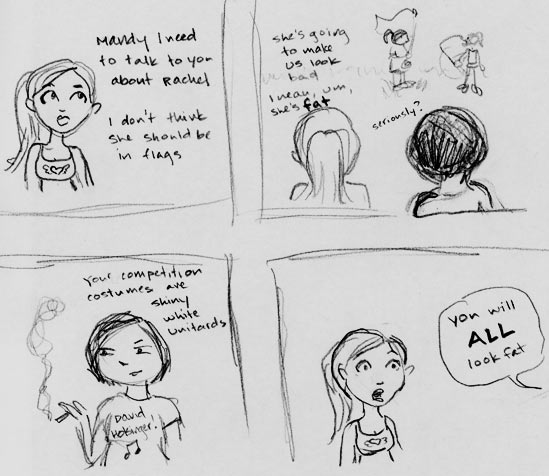 Mandy I need
to talk to you
about Rachel
I don't think
she should be
in flags
she's going
to make
us look
bad
I mean, um,
she's fat
seriously?
Your competition
costumes are
shiny
white
unitards
David
you will
ALL
look fat